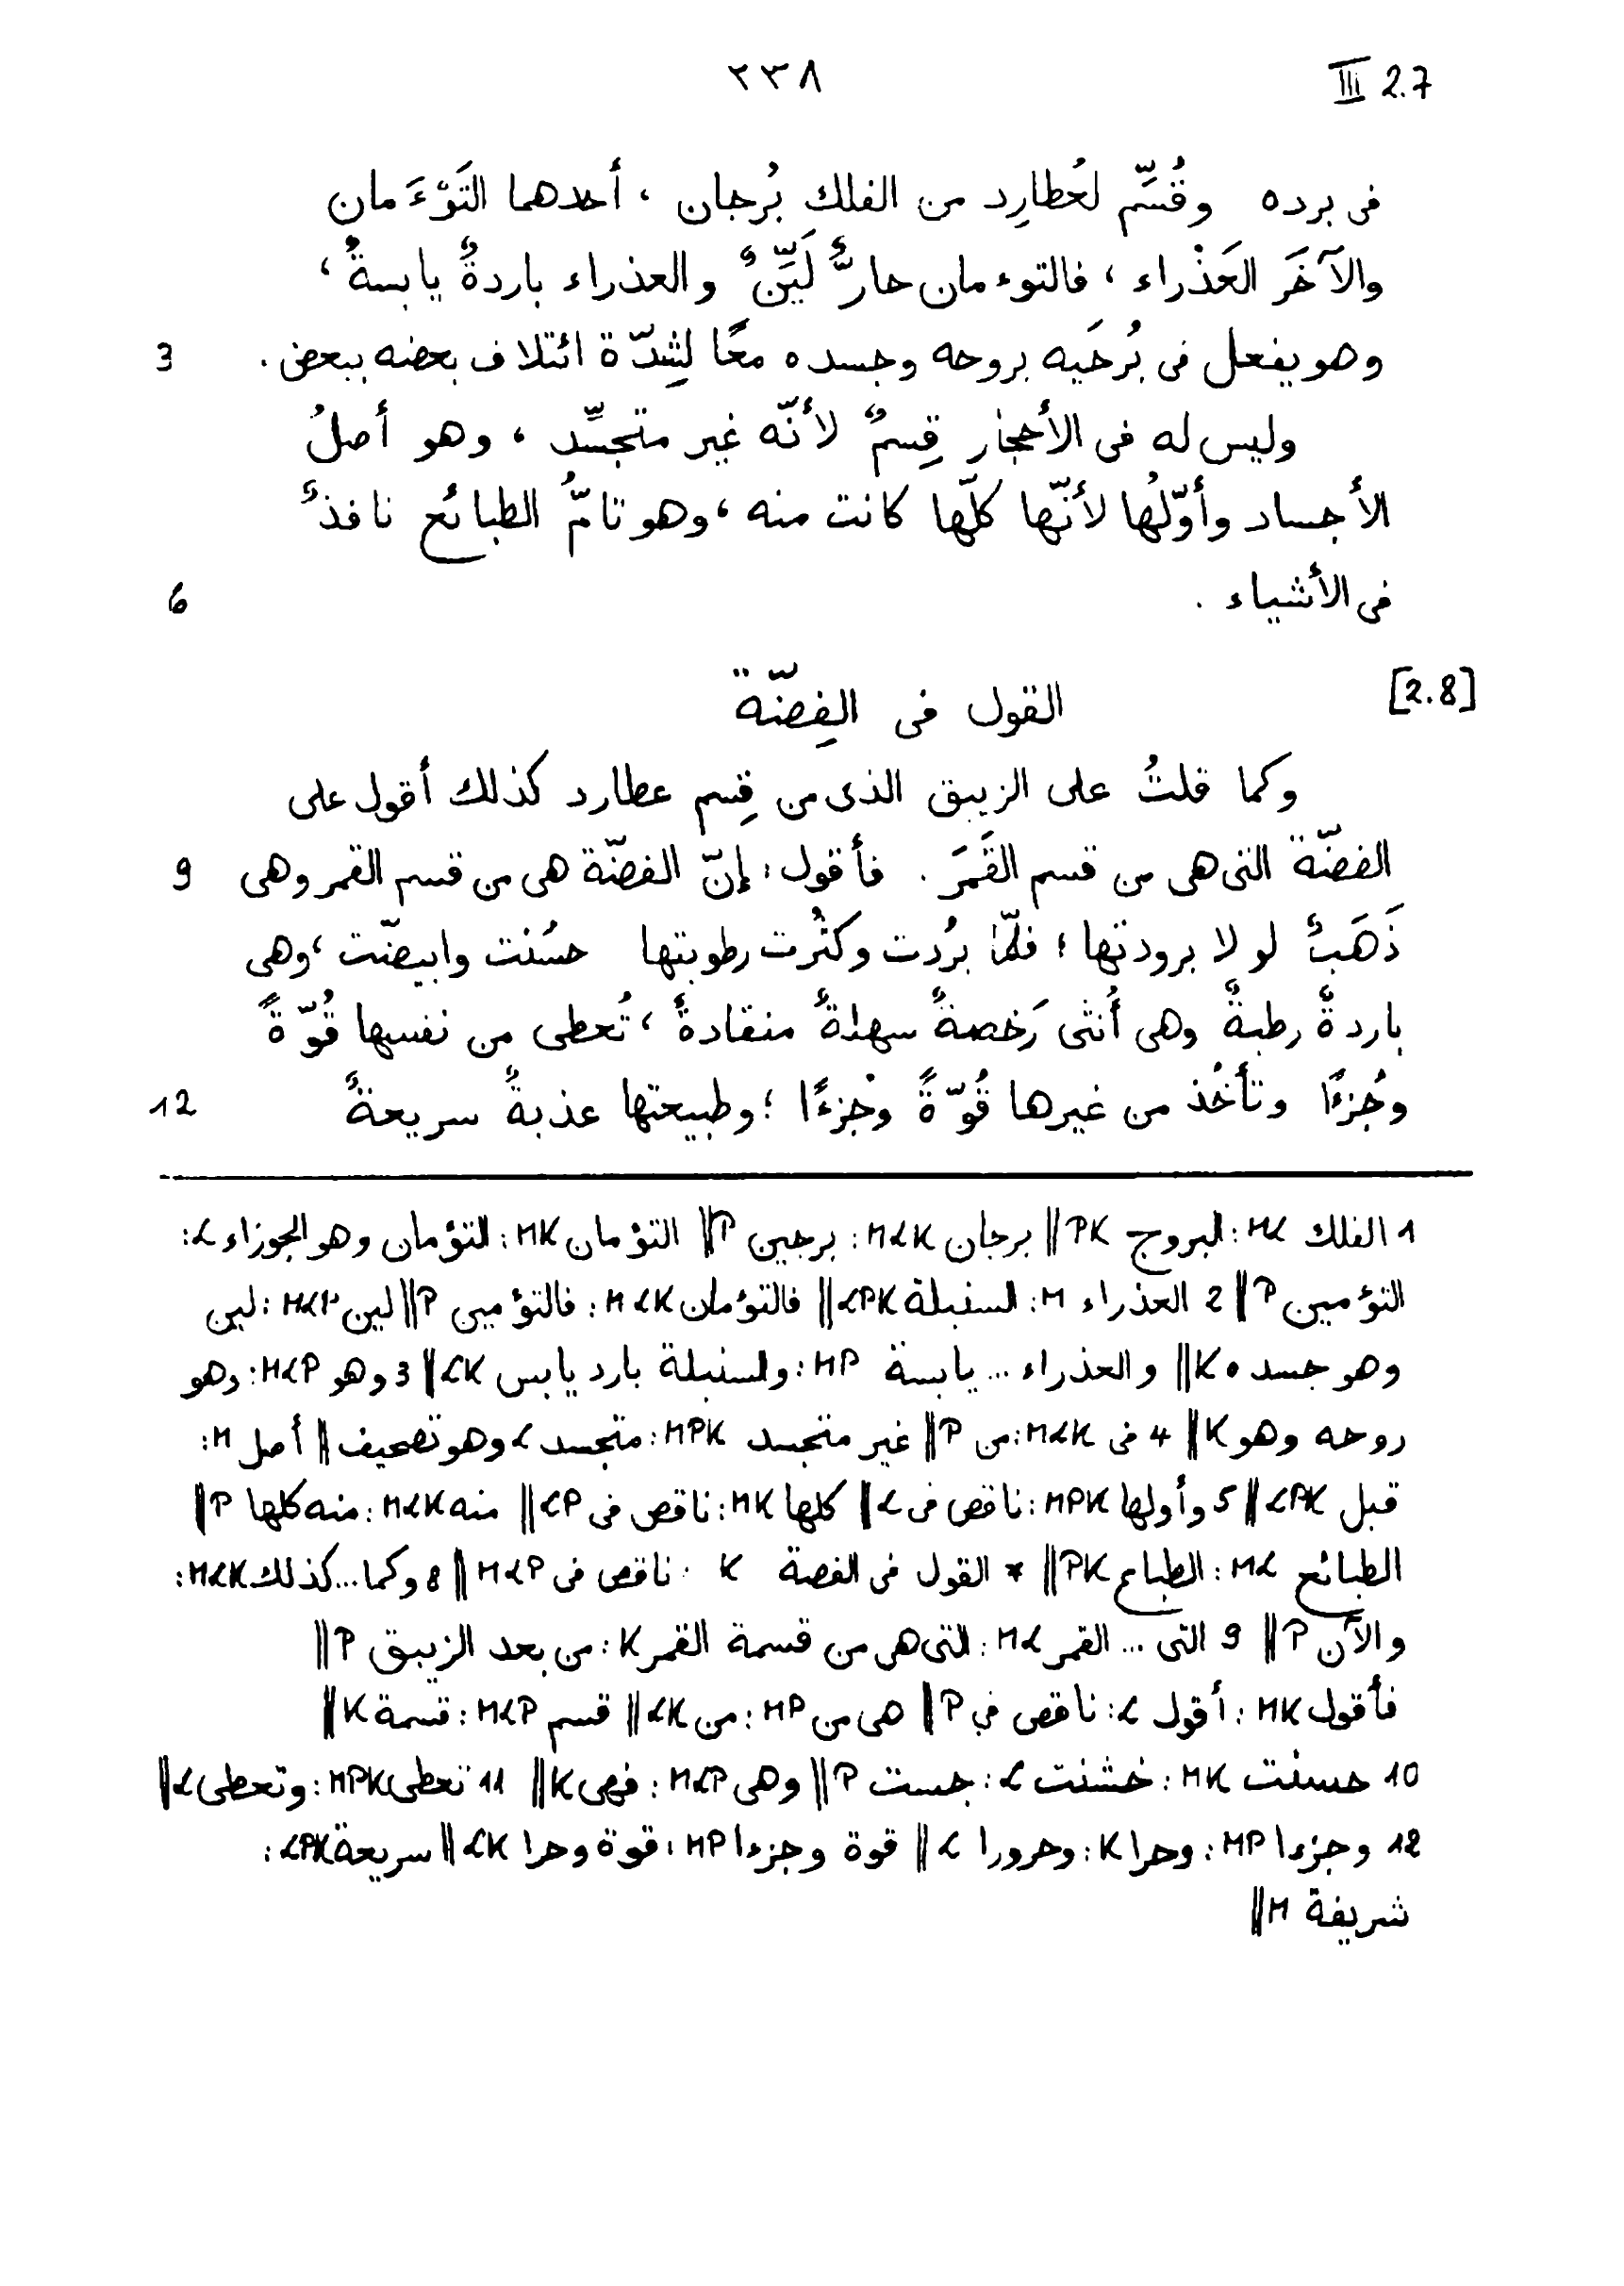 ٢٣٨ III 2.7
فى برده وقُسِّم لعُطارِد من الفلك بُرجان ، أحدهما التَوْءَمان
والآخَر العَذْراء ، فالتوءمان حارٌّ لَيِّنٌ والعذراء باردةٌ يابسةٌ ،
وهو يفعل فى بُرجَيه بروحه وجسده معًا لشِدّة ائتلاف بعضه ببعض . 3
وليس له فى الأحجار قِسمٌ لأنّه غير متجسِّد ، وهو أصلُ
الأجساد وأوّلُها لأنّها كلّها كانت منه ، وهو تامُّ الطبائع نافذٌ
فى الأشياء . 6
[2.8] القول فى الفِضّة
وكما قلتُ على الزيبق الذى من قِسم عطارد كذلك أقول على
الفضّة التى هى من قسم القَمَر . فأقول : إنّ الفضّة هى من قسم القمر وهى 9
ذَهَبٌ لو لا برودتها ؛ فلمّا برُدت وكثُرت رطوبتها حسُنت وابيضّت ، وهى
باردةٌ رطبةٌ وهى أُنثى رَخصةٌ سهلةٌ منقادةٌ ، تُعطى من نفسها قُوّةً
وجُزءًا وتأخُذ من غيرها قُوّةً وجُزءًا ؛ وطبيعتها عذبةٌ سريعةٌ 12
1 الفلك ML : البروج PK || برجان MLK : برجين P || التؤمان MK : التؤمان وهو الجوزاء L :
التؤمين P || 2 العذراء M : السنبلة LPK || فالتؤمان MLK : فالتؤمين P || لين MLP : لين
وهو جسده K || والعذراء ... يابسة MP : والسنبلة بارد يابس LK || 3 وهو MLP : وهو
روحه وهو K || 4 فى MLK : من P || غير متجسد MPK : متجسد L وهو تصحيف || أصل M :
قبل LPK || 5 وأولها MPK : ناقص فى L || كلها MK : ناقص فى LP || منه MLK : منه كلها P ||
الطبائع ML : الطباع PK || * القول فى الفضة K : ناقص فى MLP || 8 وكما ... كذلك MLK :
والآن P || 9 التى ... القمر ML : التى هى من قسمة القمر K : من بعد الزيبق P ||
فأقول MK : أقول L : ناقص في P || هى من MP : من LK || قسم MLP : قسمة K ||
10 حسنت MK : خشنت L : جست P || وهى MLP : فهى K || 11 تعطى MPK : وتعطى L ||
12 وجزءا MP : وحرا K : وحرورا L || قوة وجزءا MP : قوة وحرا LK || سريعة LPK :
شريفة M ||